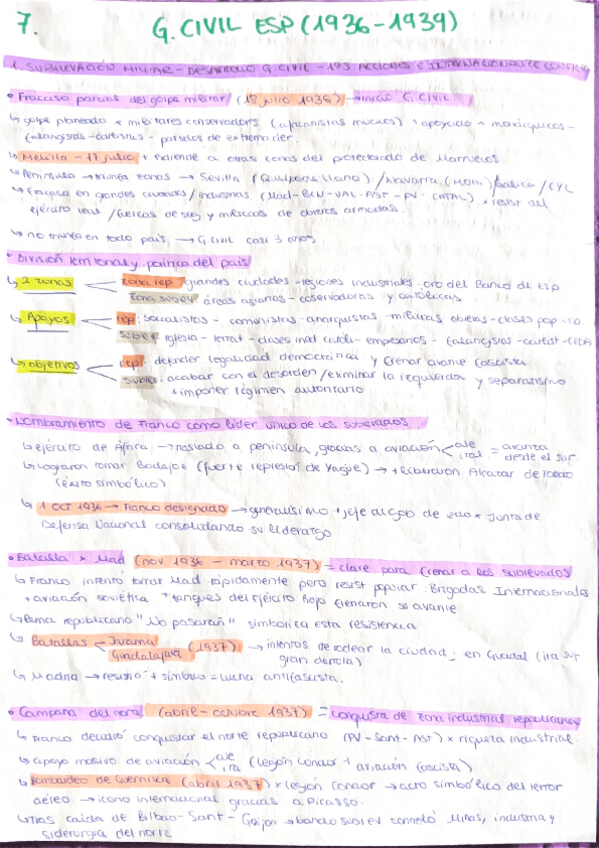 7. G. CIVIL ESP (1936-1939)
1. SUBLEVACIÓN MILITAR - DESARROLLO G. CIVIL - ACCIONES E INTERNACIONALITE
• Fracaso parcial del golpe militar (18 julio 1936) → inicio G. CIVIL
↳ golpe planeado x militares conservadores (africanistas muchos) + apoyado x monárquicos -
falangistas - carlistas - partidos de extrema der.
↳ Melilla - 17 julio + extiende a otras zonas del protectorado de Marruecos.
↳ Península → triunfa zonas → Sevilla (Queipo de Llano) / Navarra (Mola) / Galicia / CYL
↳ fracasa en grandes ciudades / industrias (Mad - BCN - VAL - AST - PV - CNTAB) x resist del
ejército leal / fuerzas de seg y milicias de obreros armadas.
↳ no triunfa en todo país → G CIVIL casi 3 años.
• División territorial y política del país
↳ 2 zonas zona rep: grandes ciudades - regiones industriales - oro del Banco de Esp
zona sublev: áreas agrarias - conservadoras y católicas
↳ Apoyos rep: socialistas - comunistas - anarquistas - milicias obreras - clases pop
sublev: iglesia - terrat - clases med - empresarios - falangistas - carlist - CEDA
↳ objetivos rep: defender legalidad democrática y frenar avance fascista
sublev: acabar con el desorden / eliminar la izquierda y separatismo
+ imponer régimen autoritario
• Nombramiento de Franco como líder único de los sublevados
↳ ejército de África → traslado a península, gracias a aviación ale ital = avanza desde el sur
↳ lograron tomar Badajoz (fuerte represión de Yagüe) → + liberación Alcázar de Toledo
(éxito simbólico)
↳ 1 OCT 1936 → Franco designado → generalísimo + jefe del gob de x Junta de
Defensa Nacional consolidando su liderazgo
• Batalla x Mad (nov 1936 - marzo 1937) = clave para frenar a los sublevados
↳ Franco intentó tomar Mad rápidamente pero resist popular. Brigadas Internacionales
+ aviación soviética + tanques del Ejército Rojo frenaron su avance
↳ Lema republicano "No pasarán" simboliza esta resistencia
↳ Batallas Jarama Guadalajara (1937) → intentos de rodear la ciudad; en Guadal (ita sufr
gran derrota)
↳ Madrid → resistió + símbolo = lucha antifascista.
• Campaña del norte (abril - octubre 1937) = conquista de zona industrial republicana
↳ Franco decidió conquistar el norte republicano (PV - Sant - Ast) x riqueza industrial
↳ apoyo masivo de aviación ale ita (legión Condor + aviación fascista)
↳ Bombardeo de Guernika (abril 1937) x legión Condor → acto simbólico del terror
aéreo → icono internacional gracias a Picasso.
↳ Tras caída de Bilbao - Sant - Gijón → bando sublev controló minas, industria y
siderurgia del norte